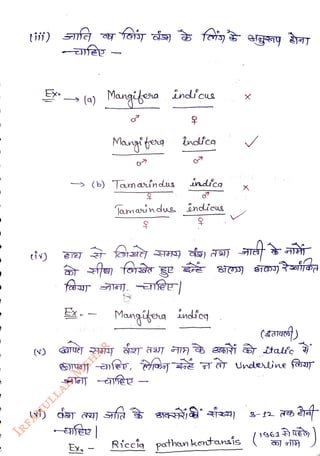 (iii) जाति का लिंग वंश के लिंग के अनुरूप होना
चाहिए -
Ex. → (a) Mangifera indicus ×
♂ ♀
Mangifera indica ✓
♂ ♂
→ (b) Tamarindus indica ×
♀ ♂
Tamarindus indicus ✓
♀ ♀
(iv) हाथ से लिखते समय वंश तथा जाती के नामों
को सीधा लिखते हुए इन्हें अलग अलग रेखांकित
किया जाना चाहिए।
Ex. - Mangifera indica
(इतावली)
(v) छापते समय वंश तथा नाम के अक्षरों को Italic में
छापना चाहिए, लेकिन इन्हें न तो Underline किया
जाना चाहिए -
(vi) वंश तथा जाति के अक्षरों की संख्या 3-12 तक होनी
चाहिए।
Ex. - Riccia pathankotansis (1962 से पहले का नाम)
IRFANULLAH AKHTAR